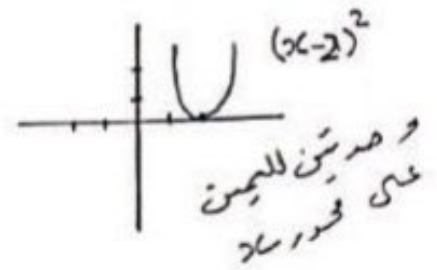 (x-2)²
وحدتين لليمين
على محور x